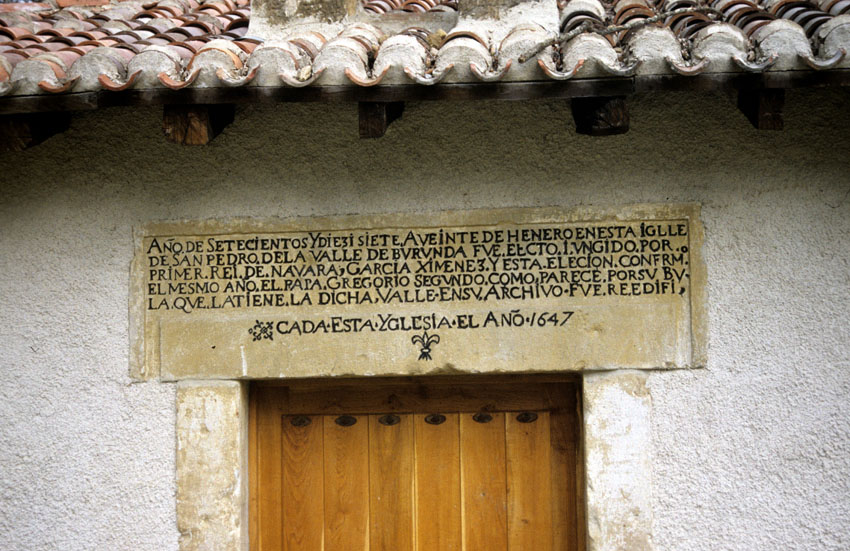 AÑO, DE SETECIENTOS YDIEZI SIETE, AVEINTE DE HENERO EN ESTA IGLLE
DE SAN PEDRO, DELA VALLE DE BURUNDA FUE. ELCTO. I, UNGIDO. POR.
PRIMER. REI, DE. NAVARA, GARCIA XIMENEZ. Y ESTA. ELECION. CONFRM.
EL MESMO AÑO, EL PAPA, GREGORIO SEGUNDO, COMO, PARECE, POR SU, BU.
LA, QUE, LATIENE, LA DICHA, VALLE, ENSU, ARCHIVO. FUE. REEDIFI,
CADA. ESTA. YGLESIA. EL AÑO. 1647